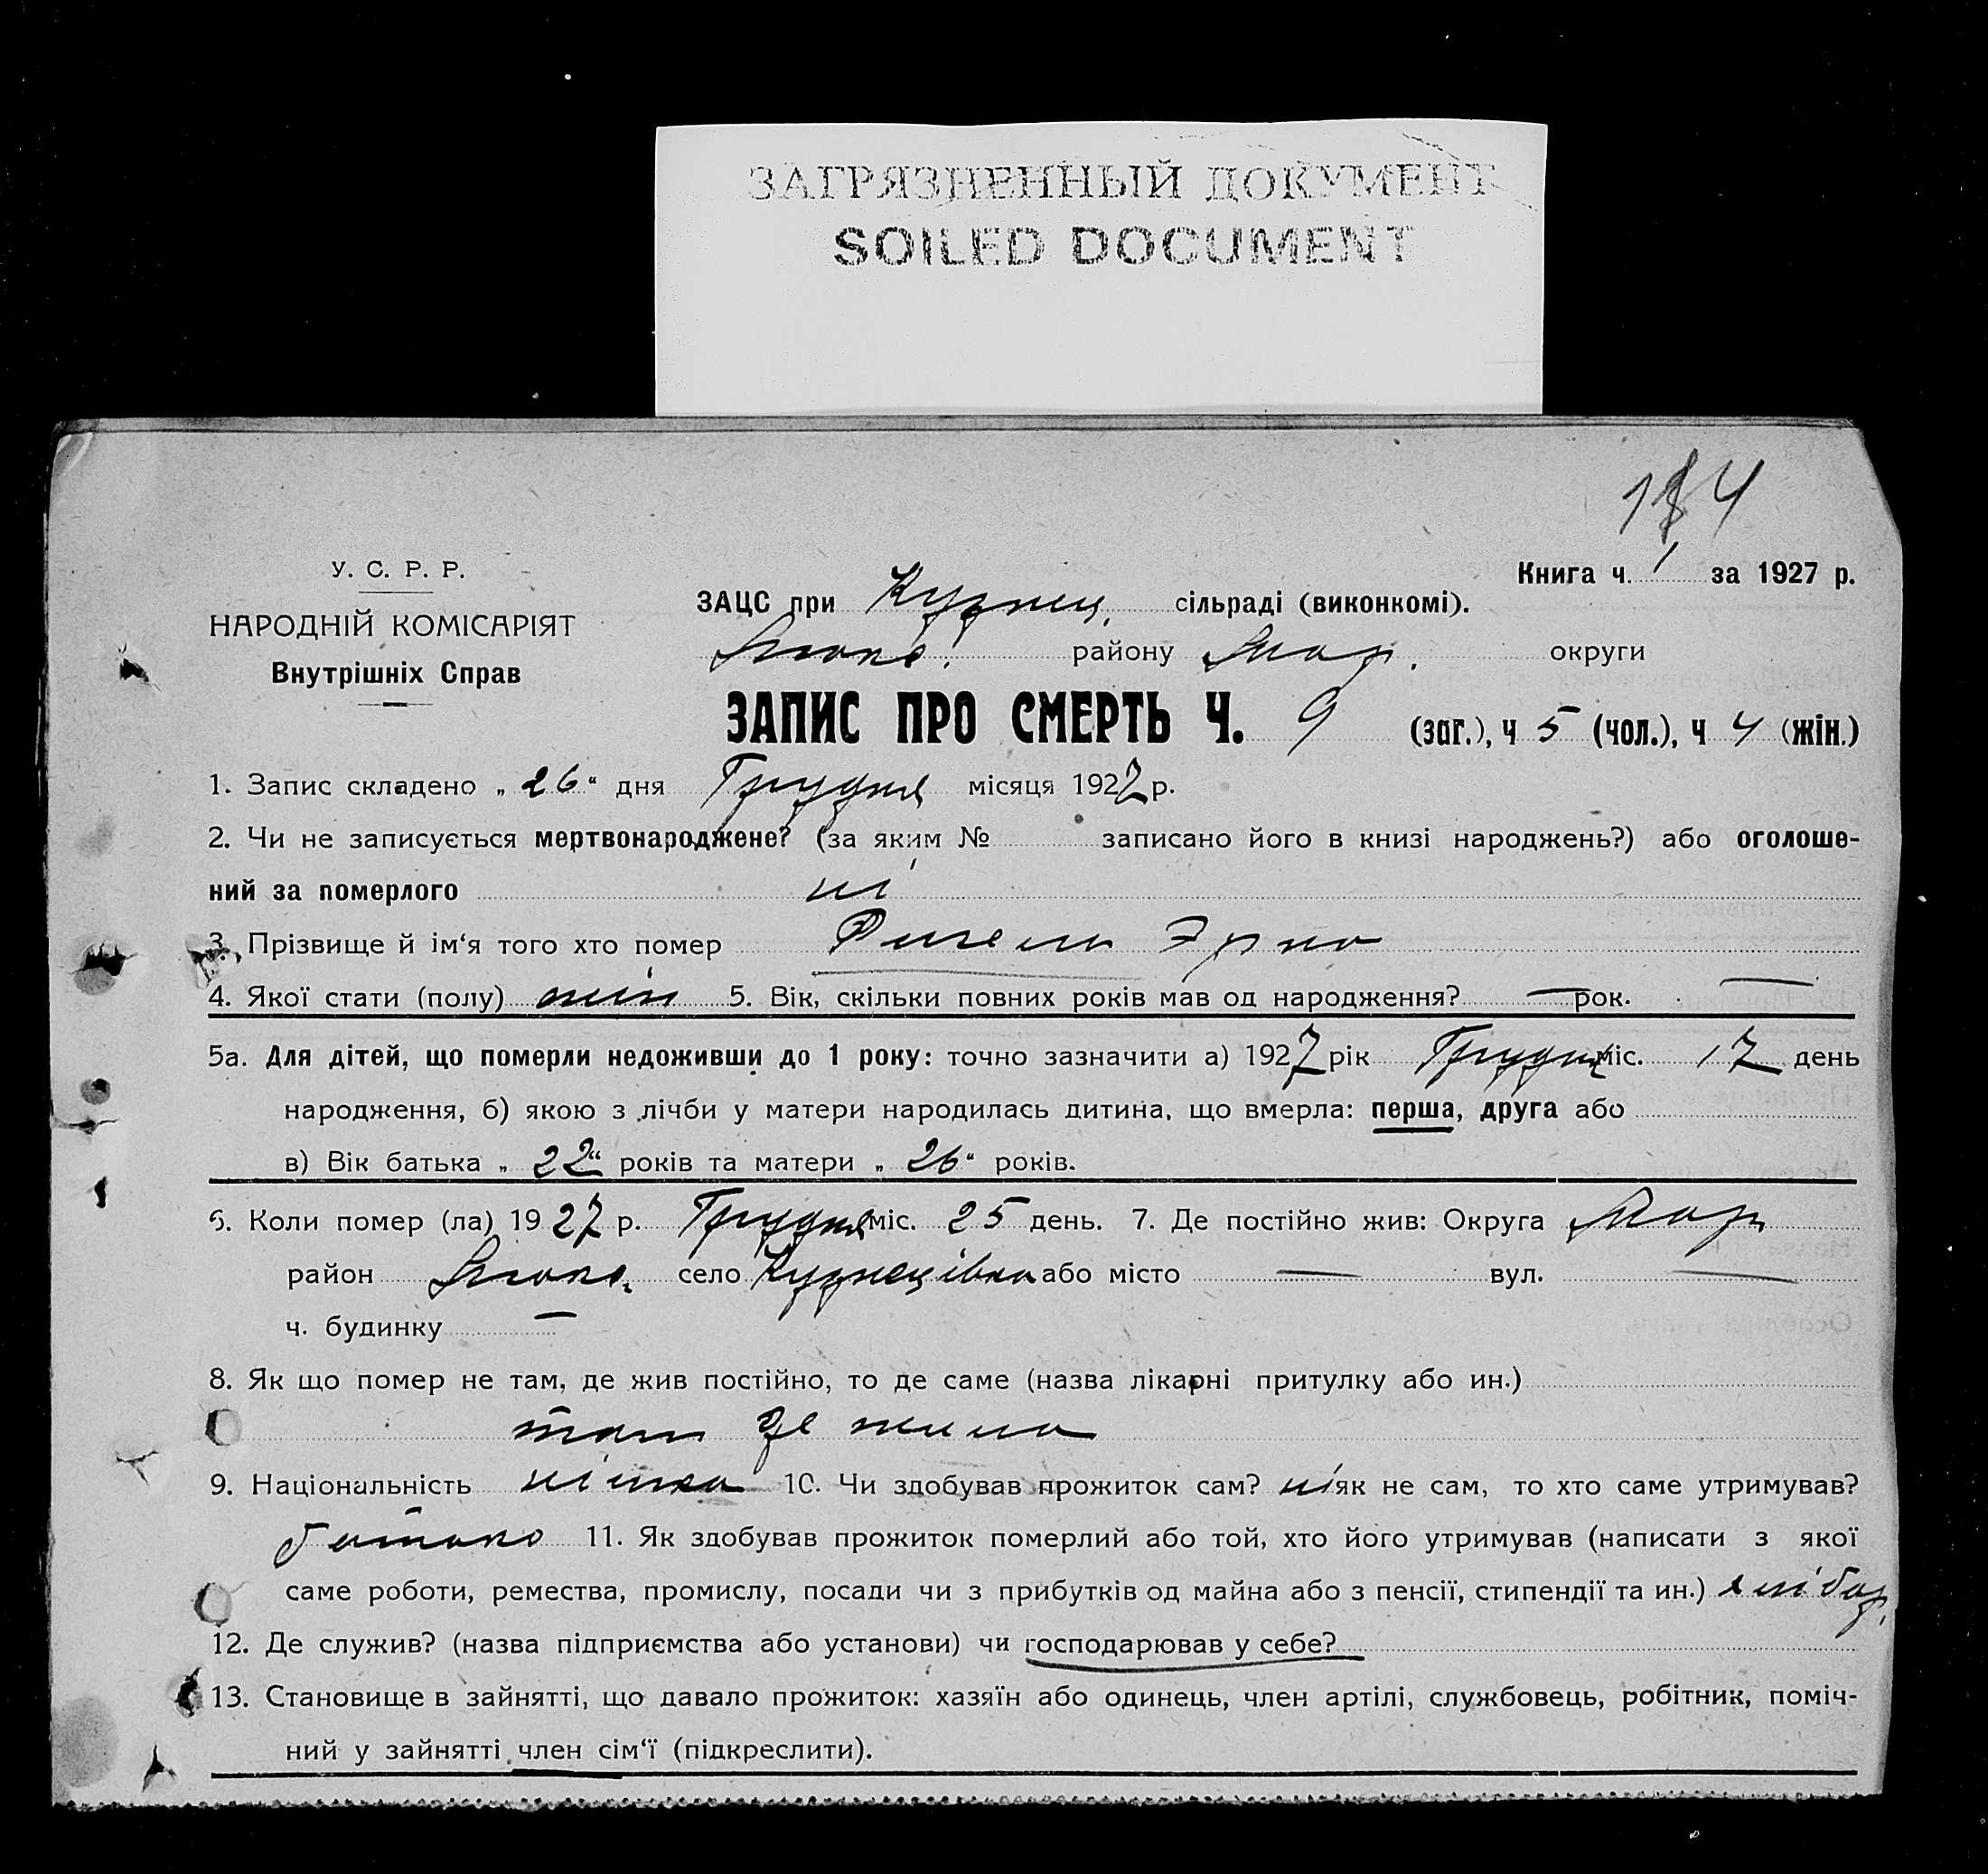 ЗАГРЯЗНЕННЫЙ ДОКУМЕНТ
SOILED DOCUMENT
У. С. Р. Р.
Книга ч. 1 за 1927 р.
ЗАЦС при Кузнец. сільраді (виконкомі).
НАРОДНІЙ КОМІСАРІЯТ
району Мар. округи
Внутрішніх Справ
ЗАПИС ПРО СМЕРТЬ Ч. 9 (заг.), ч 5 (чол.), ч 4 (жін.)
1. Запис складено „ 26 “ дня Грудня місяця 1927 р.
2. Чи не записується мертвонароджене? (за яким № записано його в книзі народжень?) або оголоше-
ний за померлого ні
3. Прізвище й ім‘я того хто помер
4. Якої стати (полу) жін 5. Вік, скільки повних років мав од народження? — рок. —
5а. Для дітей, що померли недоживши до 1 року: точно зазначити а) 1927 рік Грудня міс. 17 день
народження, б) якою з лічби у матери народилась дитина, що вмерла: перша, друга або
в) Вік батька „ 22 “ років та матери „ 26 “ років.
6. Коли помер (ла) 1927 р. Грудня міс. 25 день. 7. Де постійно жив: Округа Мар
район село Кузнецівка або місто — вул. —
ч. будинку —
8. Як що помер не там, де жив постійно, то де саме (назва лікарні притулку або ин.)
там де жила
9. Національність німка 10. Чи здобував прожиток сам? ні як не сам, то хто саме утримував?
батько 11. Як здобував прожиток померлий або той, хто його утримував (написати з якої
саме роботи, ремества, промислу, посади чи з прибутків од майна або з пенсії, стипендії та ин.) хлібор.
12. Де служив? (назва підприємства або установи) чи господарював у себе?
13. Становище в зайнятті, що давало прожиток: хазяїн або одинець, член артілі, службовець, робітник, поміч-
ний у зайнятті член сім‘ї (підкреслити).